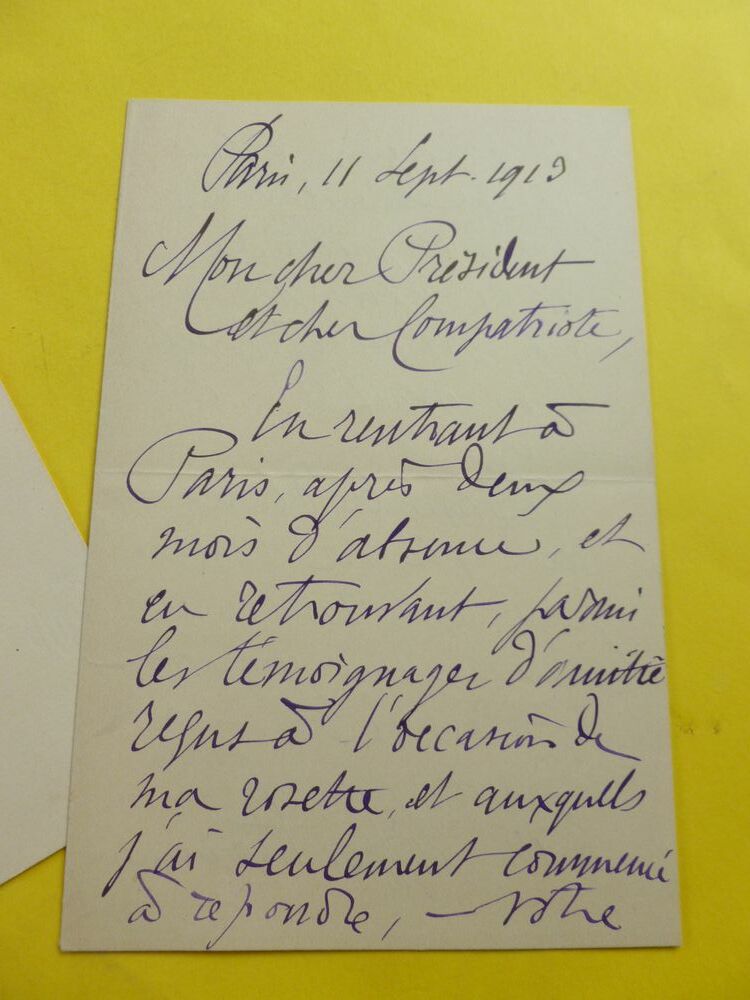 Paris, 11 Sept. 1913
Mon cher Président
et cher Compatriote,
En rentrant à
Paris, après deux
mois d'absence, et
en retrouvant, parmi
les témoignages d'amitié
reçus à l'occasion de
ma rosette, et auxquels
j'ai seulement commencé
à répondre, — votre